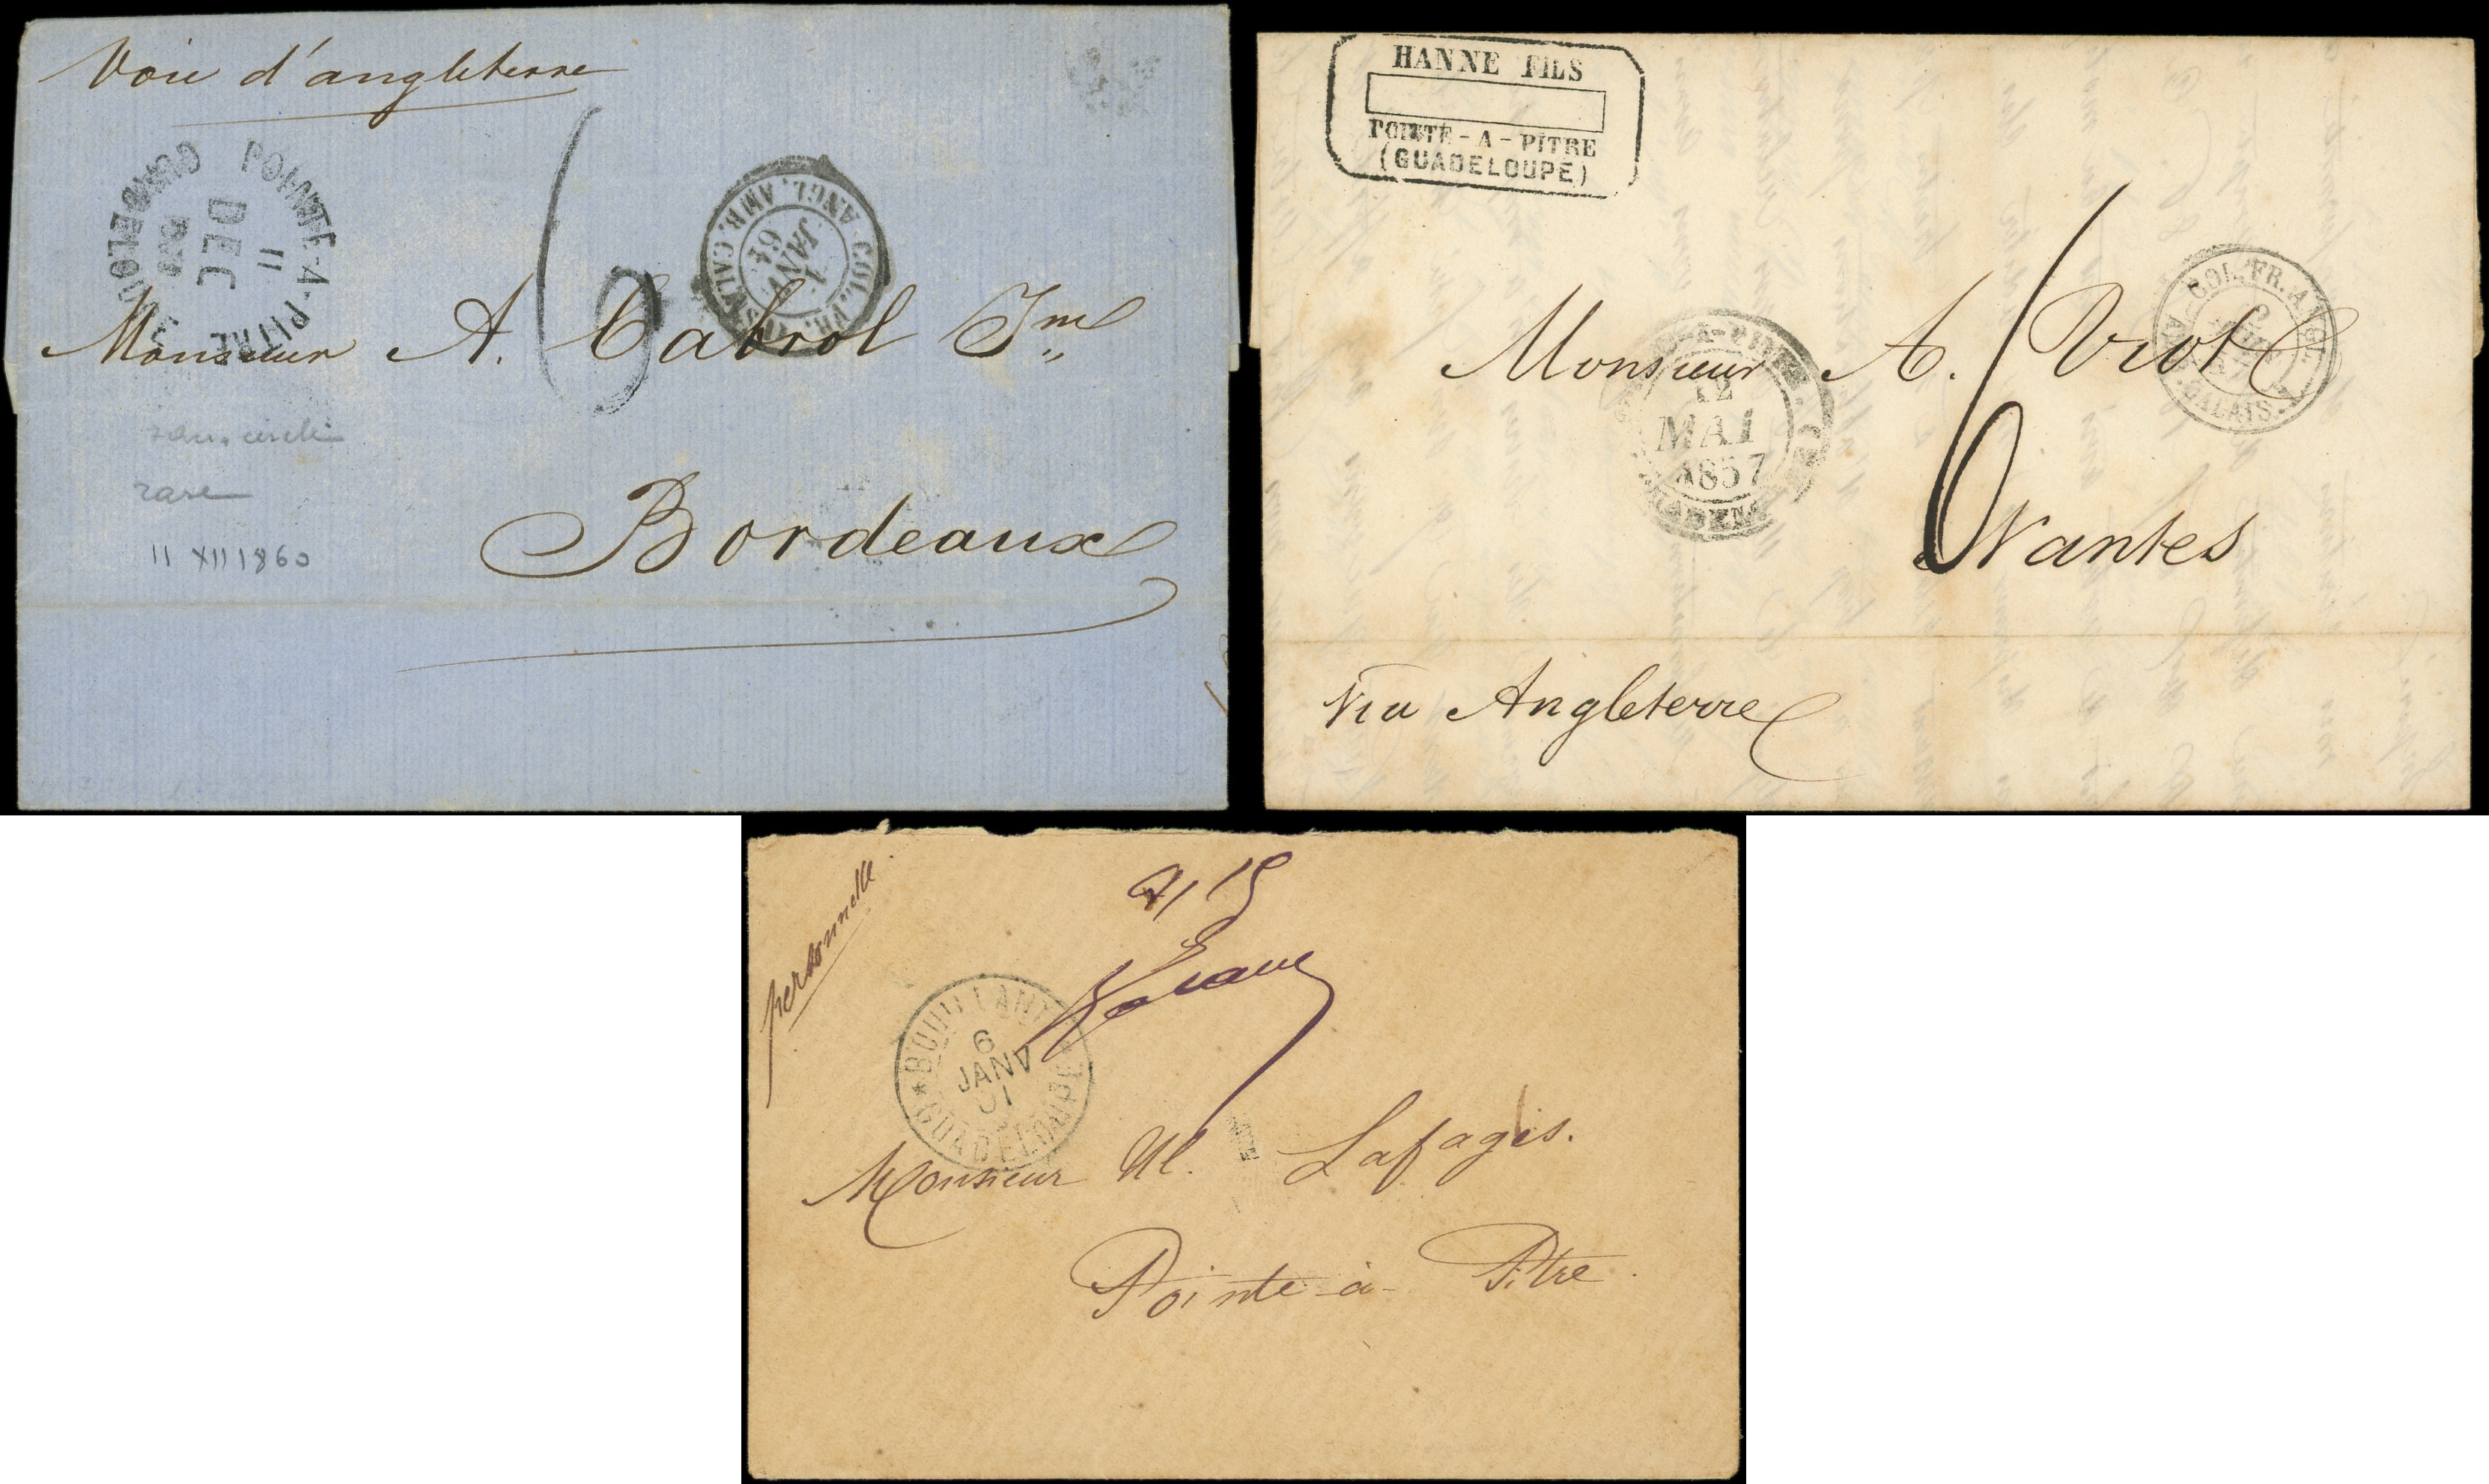 Voie d'angleterre
POINTE-A-PITRE
11
DEC
GUADELOUPE
COL. FR. ANGL. AMB. CALAIS
1
JANV.
61
6
Monsieur A. Cabrol Jne
sans cercle
rare
11 XII 1860
Bordeaux
HANNE FILS
POINTE-A-PITRE
(GUADELOUPE)
COL. FR. ANGL.
AMB. CALAIS
12
MAI
1857
6
Monsieur A. Viot
Nantes
Via Angleterre
personnelle
BOUILLANTE
6
JANV
01
GUADELOUPE
Monsieur M. Lafages.
Pointe-à-Pitre